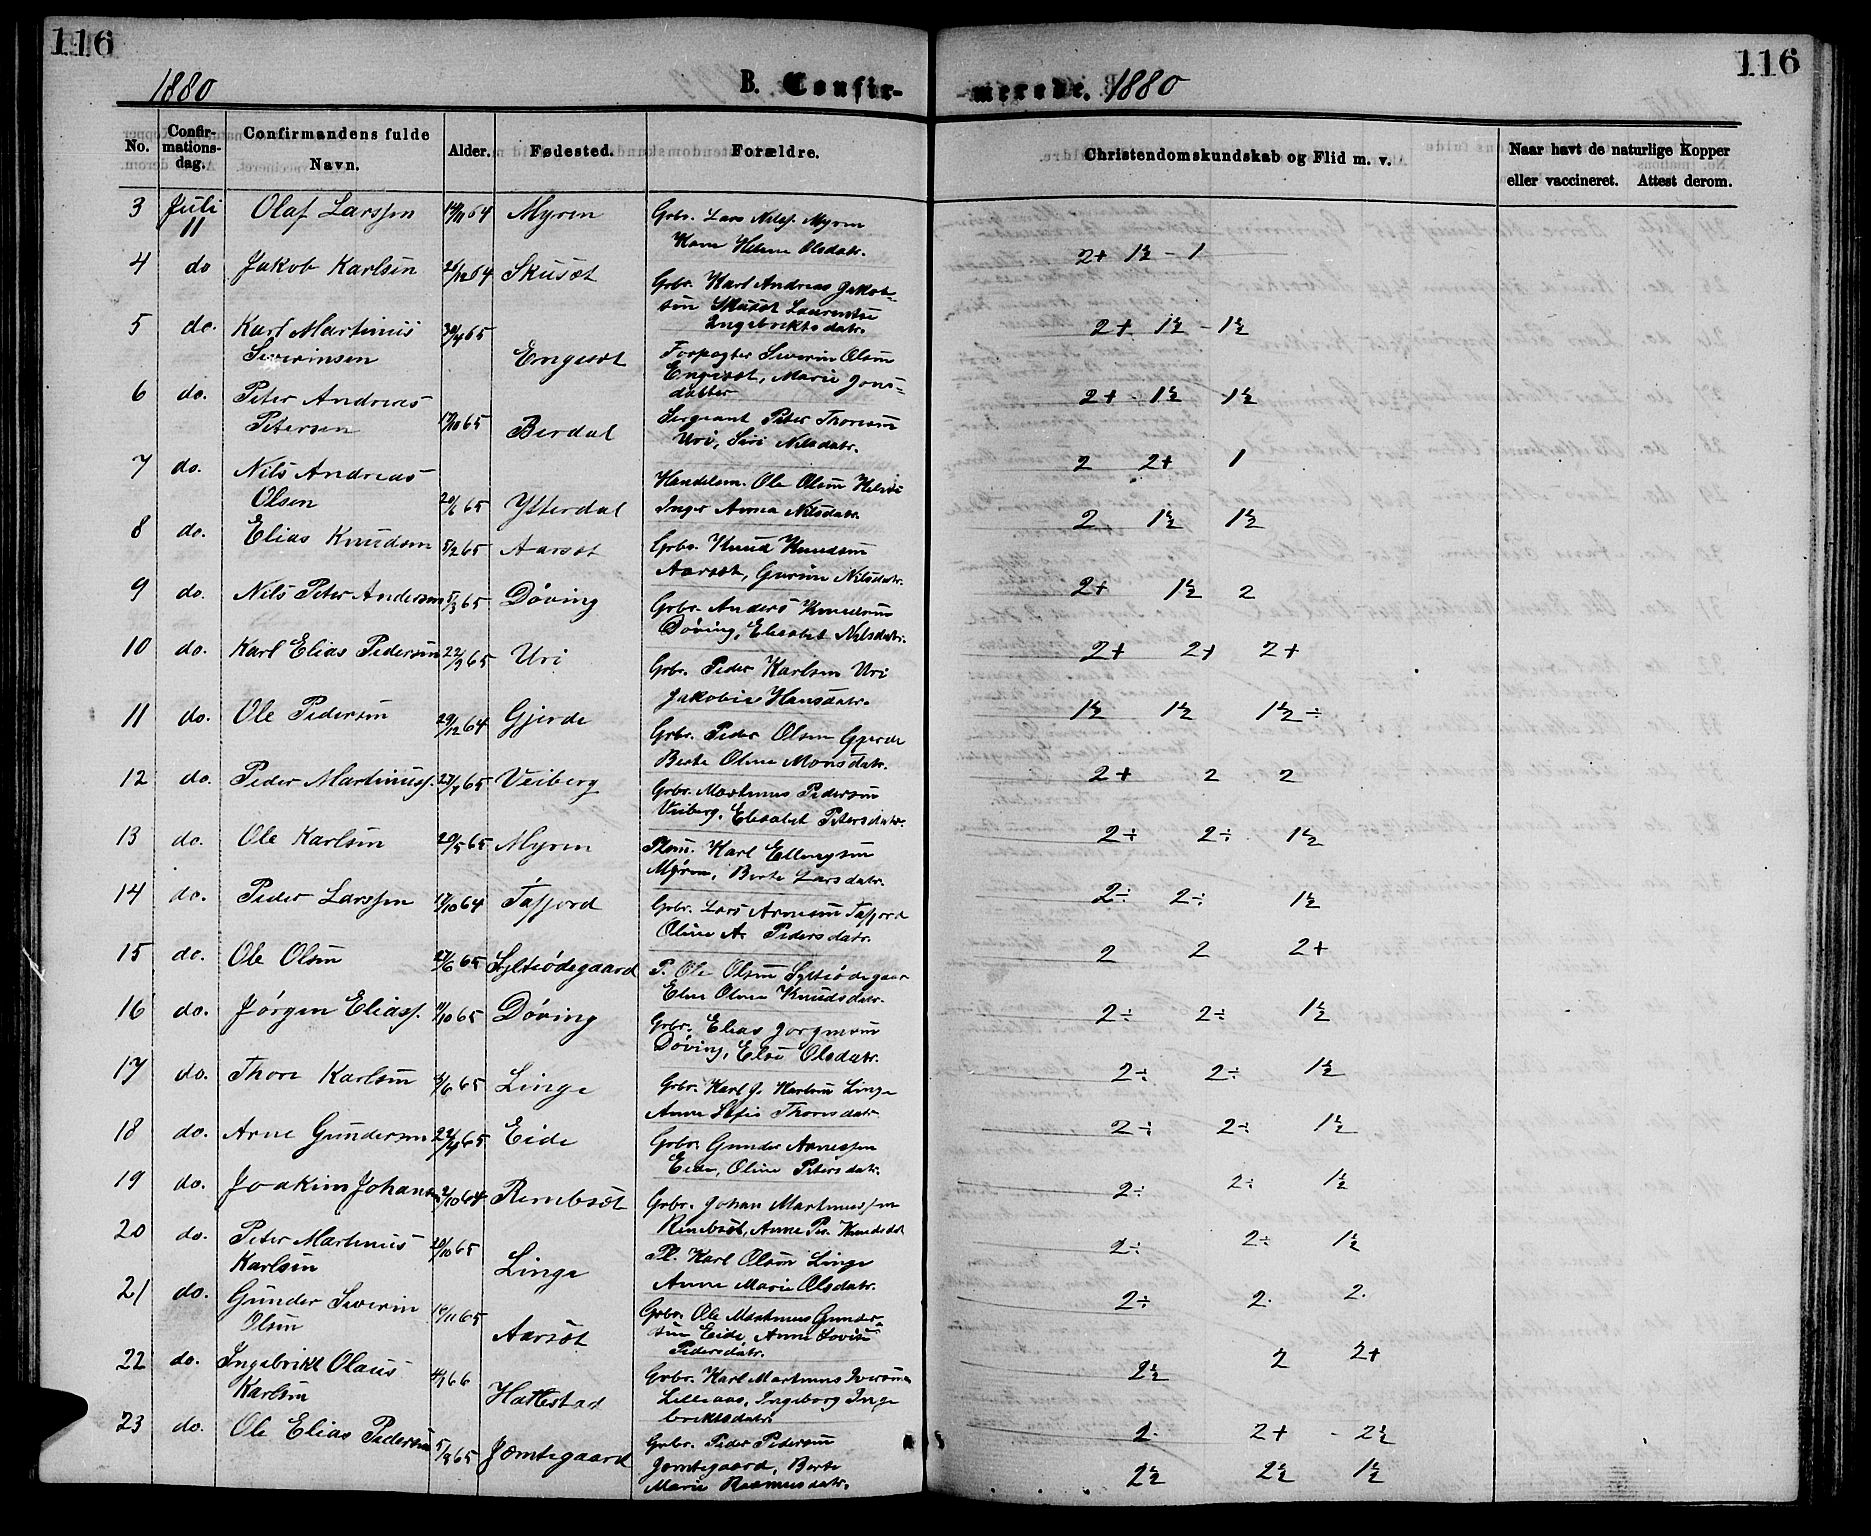 116
116
1880
B. Confir-
-merede. 1880
No.
Confir-
mations-
dag.
Confirmandens fulde
Navn.
Alder.
Fødested.
Forældre.
Christendomskundskab og Flid m. v.
Naar havt de naturlige Kopper
eller vaccineret. Attest derom.
3 Juli 11 Olaf Larssen 64 Myren
Grbr. Lars Nilsf. Myren
Kone Helene Olsdatr.
2+ 1½ - 1
4 do Jakob Karlsen 2/12 64 Skusæt
Grbr. Karl Andreas Jakob-
sen Skusæt Laurentse
Ingebriktsdatr.
2+ 1½ - 1½
5 do. Karl Martinus 30/4 65
Severinsen Engesæt
Forpagter Severin Olsen
Engesæt, Marie Jons-
datter
2+ - 1½ 1½
6 do. Peter Andreas
Petersen 65 Berdal
Sergeant Peter Thoresen
Uri, Siri Nilsdatr.
2 2+ 1
7 do. Nils Andreas
Olsen 65 Ytterdal
Handelsm. Ole Olsen
Inger Anna Nilsdatr.
2 1½ 1½
8 do. Elias Knudsen 5/2 65 Aarsæt
Grbr. Knud Knudsen
Aarsæt, Gurine Nilsdatr.
2+ 1½ 2
9 do. Nils Peter Andersen 5/3 65 Døving
Grbr. Anders Knudsen
Døving, Elisabet Nilsdatr.
2+ 2+ 2+
10 do. Karl Elias Pedersen 65 Uri
Grbr. Peder Karlsen Uri
Jakobie Hansdatr.
1½ 1½ 1½ ÷
11 do. Ole Pedersen 29/12 64 Gjerde
Grbr. Peder Olsen Gjerde
Berte Oline Monsdatr.
2+ 2 2
12 do. Peder Martinusf. 65 Veiberg
Grbr. Martinus Pedersen
Veiberg, Elisabet Petersdatr.
2÷ 2÷ 1½
13 do. Ole Karlsen 20/5 65 Myren
Karl Ellingsen
Myren, Berte Larsdatr.
2÷ 2÷ 1½
14 do. Peder Larssen 64 Tafjord
Grbr. Lars Arnesen Tafjord
Oline A. Pedersdatr.
2 2 2+
15 do. Ole Olsen 27/6 65 Sylteødegaard
P. Ole Olsen Sylteødegaar
Oline Knudsdatr.
2÷ 2÷ 1½
16 do. Jørgen Eliasf. 65 Døving
Grbr. Elias Jørgensen
Døving, Else Olsdatr.
2÷ 2÷ 1½
17 do. Thore Karlsen 65 Linge
Grbr. Karl J. Karlsen Linge
Anne Sofie Thoresdatr
2÷ 2÷ 1½
18 do. Arne Gundersen 65 Eide
Grbr. Gunder Arnessen
Eide, Oline Petersdatr.
2÷ 2÷ 1½
19 do. Joakim Johansen 64 Rembsæt
Grbr. Johan Martinussen
Rembsæt, Anne Knudsdat
2÷ 2÷ 1½
20 do. Peter Martinus
Karlsen 65 Linge
Pl. Karl Olsen Linge
Anne Marie Olsdatr.
2÷ 2. 2.
21 do. Gunder Severin
Olsen 65 Aarsæt
Grbr. Ole Martinus Gunder-
sen Eide Anne Lovise
Pedersdatr.
2½ 2 2+
22 do. Ingebrikt Olaus
Karlsen 66 Hattestad
Grbr. Karl Martinus Iversen
Lilleaas, Ingeborg Inge
briktsdatr.
2. 2+ - 2½
23 do. Ole Elias Pedersen 65 Jæmtegaard
Grbr. Peder Pedersen
Jæmtegaard, Berte
Marie Rasmusdatr.
2½ 2½ 1½